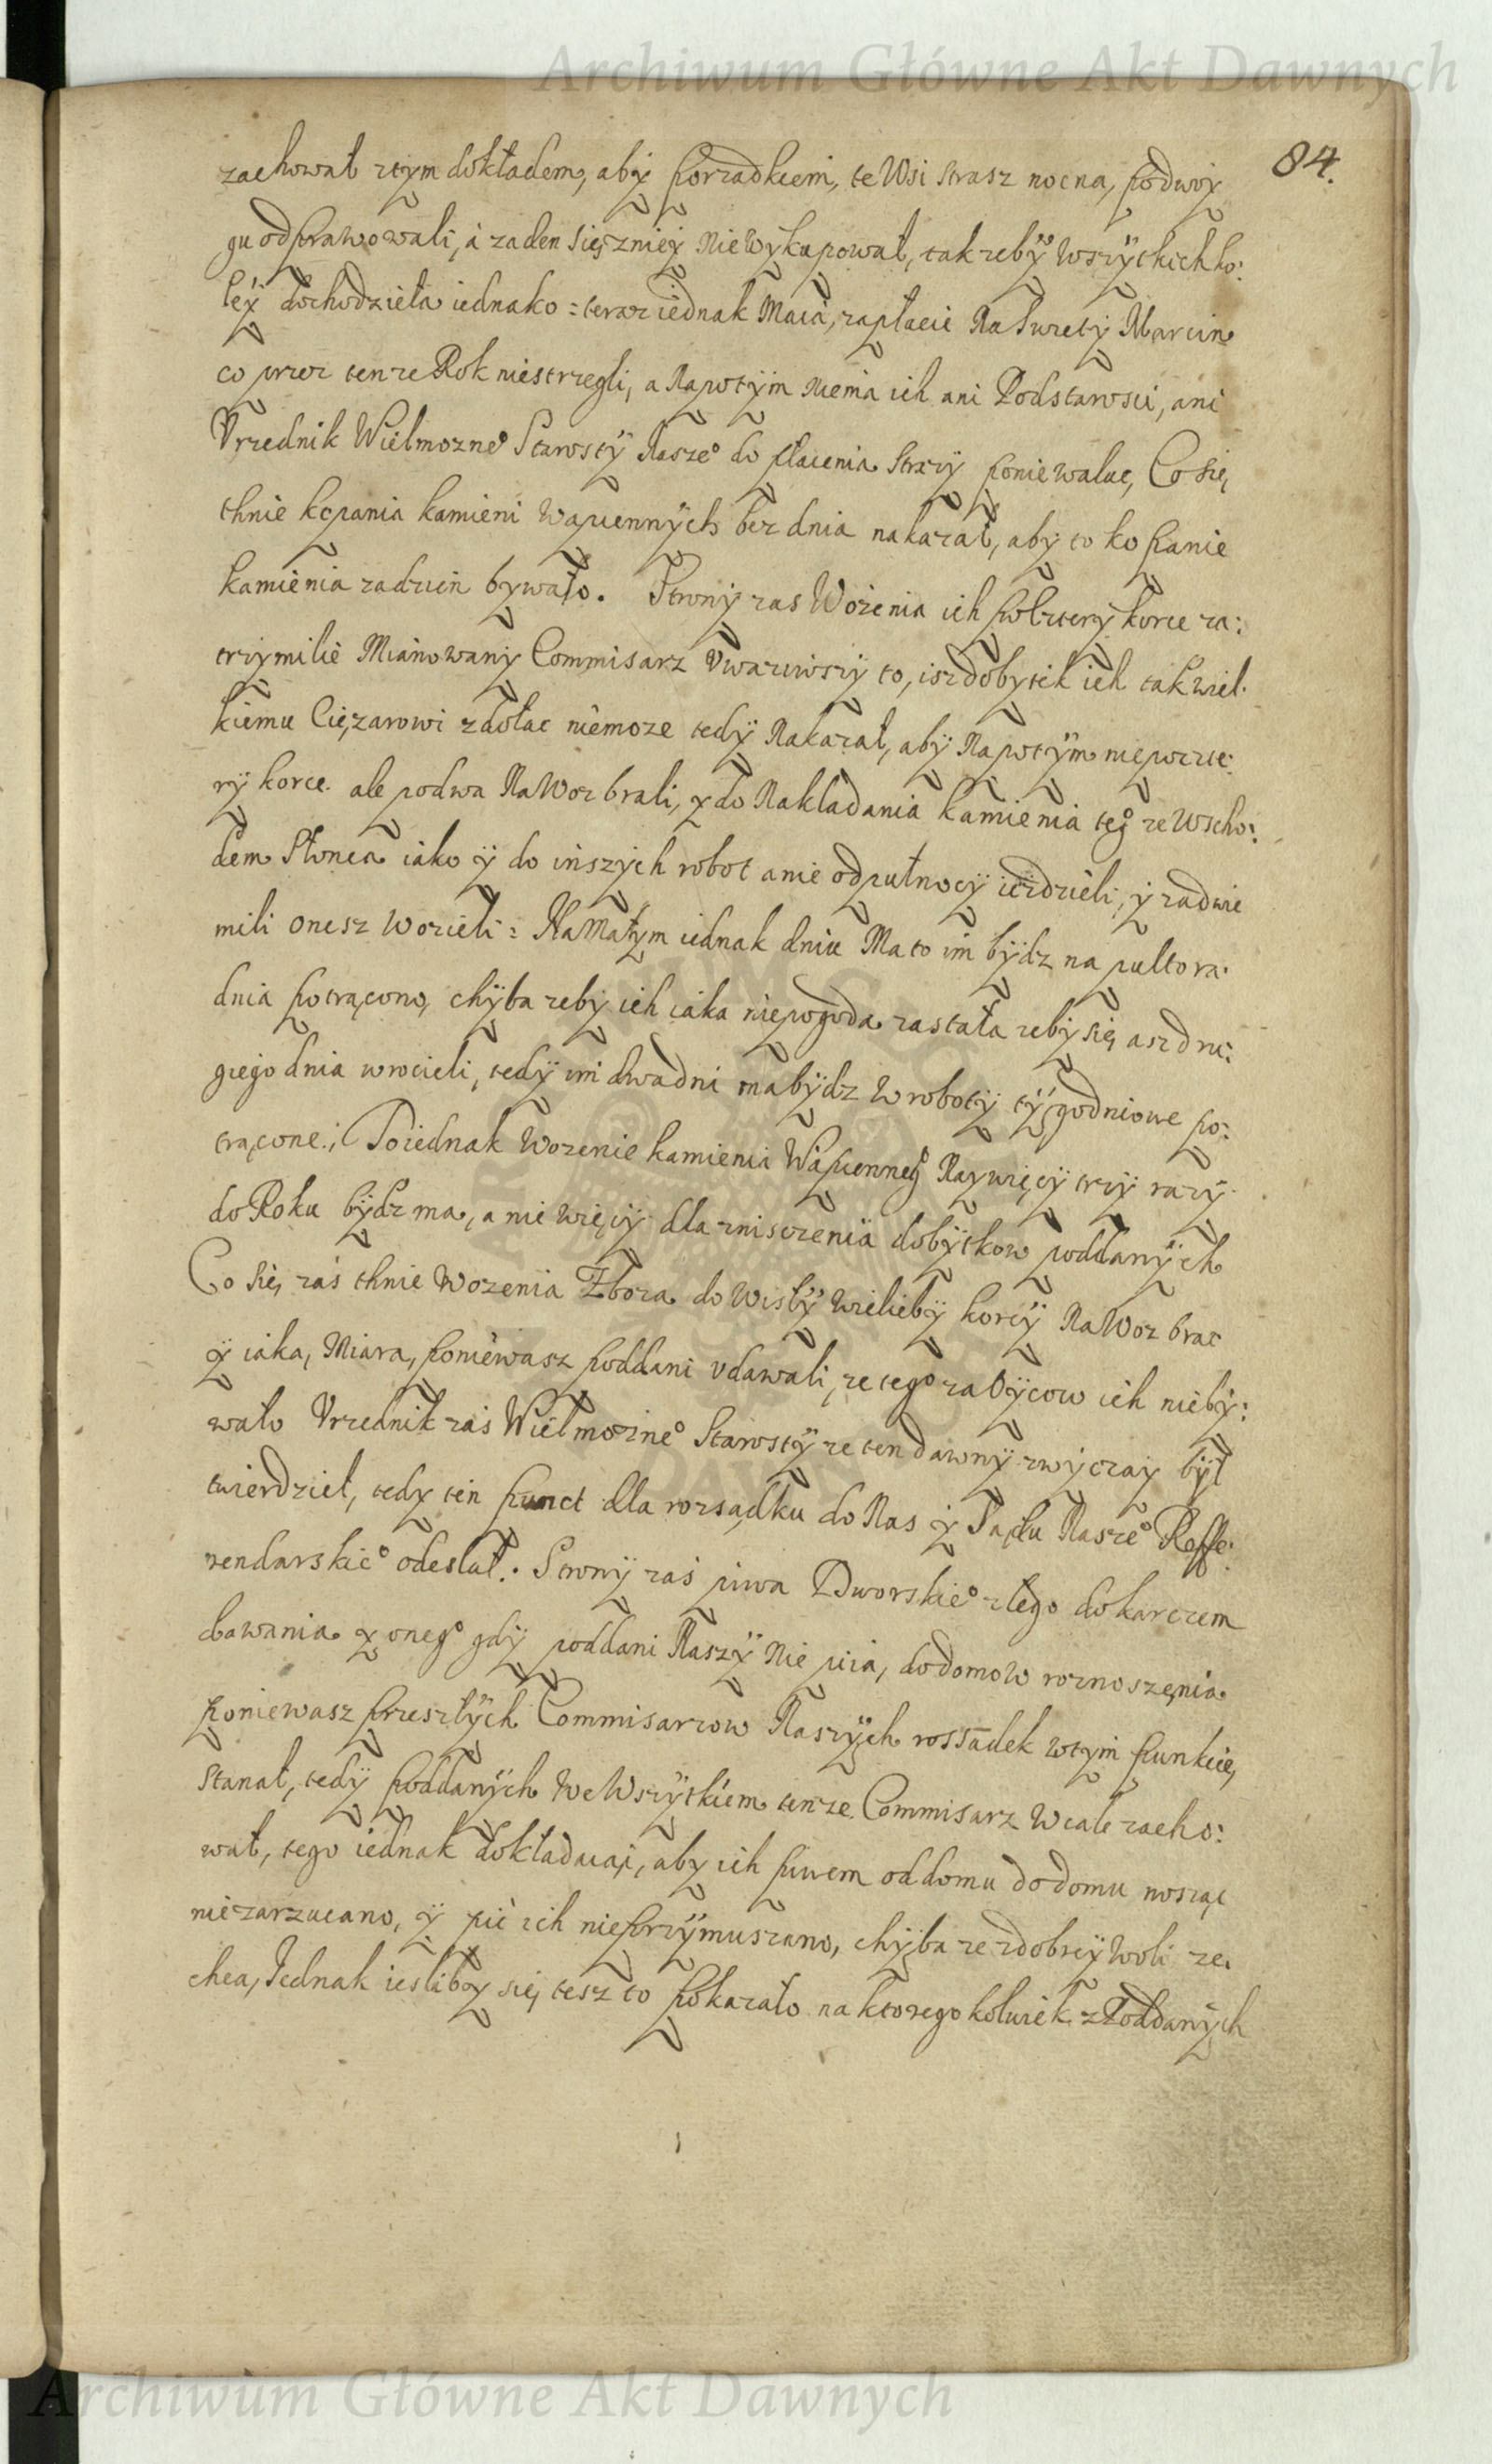 Archiwum Główne Akt Dawnych
84.
zachował ztym dokładem, aby porzadkiem, te Wsi strasz nocna, podwoy
gu odprawowali, á zaden się zniey nie wykupował, tak zeby wszytkich ko:
ley dochodzieła iednako: teraz iednak Maia, zapłacic Na Swiety Marcin
co przez tenze Rok niestrzegli, a Napotym niema ich ani Podstarosci, ani
Vrzednik Wielmozne° Starosty Nasze° do płacenia Strazy poniewalac, Co się
thnie kopania kamieni Wapiennych bez dnia nakazał, aby to kopanie
kamienia zadzien bywało. Strony zas Wozenia ich połcztery korce za:
trzy milie Mianowany Commisarz Vwazywszy to, isz dobytek ich tak wiel.
kiemu Cięzarowi zdołac niemoze tedy Nakazał, aby Napotym niepoczte:
ry korce. ale podwa Na Woz brali, y do Nakladania kamienia teg° ze Wscho:
dem Słonca iako y do inszych robot a nie odpułnocy iezdzieli, y zadwie
mili onesz wozieli: Na Małym iednak dniu Ma to im bydz na pultora
dnia potrącono, chyba zeby ich iaka niepogoda zastała zeby się asz dru:
giego dnia wrocieli, tedy im dwa dni ma bydz w roboty tygodniowe po:
trącone.; To iednak wozenie kamienia Wapienneg° Naywięcy trzy razy
do Roku bydz ma, a nie więcy dla zniszczenia dobytkow poddanych
Co się zas thnie Wozenia Zboza do Wisły wieliеby korcy Na Woz brac
y iaka, Miara, poniewasz poddani vdawali, ze tego za Oycow ich nieby:
wało Vrzednik zas Wielmozne° Starosty ze ten dawny zwyczay był
twierdzieł, tedy ten punct dla rozsądku do Nas y Sądu Nasze° Reffe:
rendarskie° odesłał. Strony zas piwa Dworskie° złego do karczem
dawania y oneg° gdy poddani Naszy Nie pija, do domow roznoszęnia
poniewasz przeszłych Commisarzow Naszych rossadek wtym punkcie,
Stanał, tedy poddanych We Wszytkiem tenze Commisarz Wcale zacho:
wał, tego iednak dokładaiąc, aby ich piwem od domu do domu nosząc
niezarzucano, y pic ich nieprzymuszano, chyba ze zdobrey Woli ze.
chca, Jednak iesliby się tesz to pokazało na ktoregokolwiek z Poddanych
Archiwum Główne Akt Dawnych